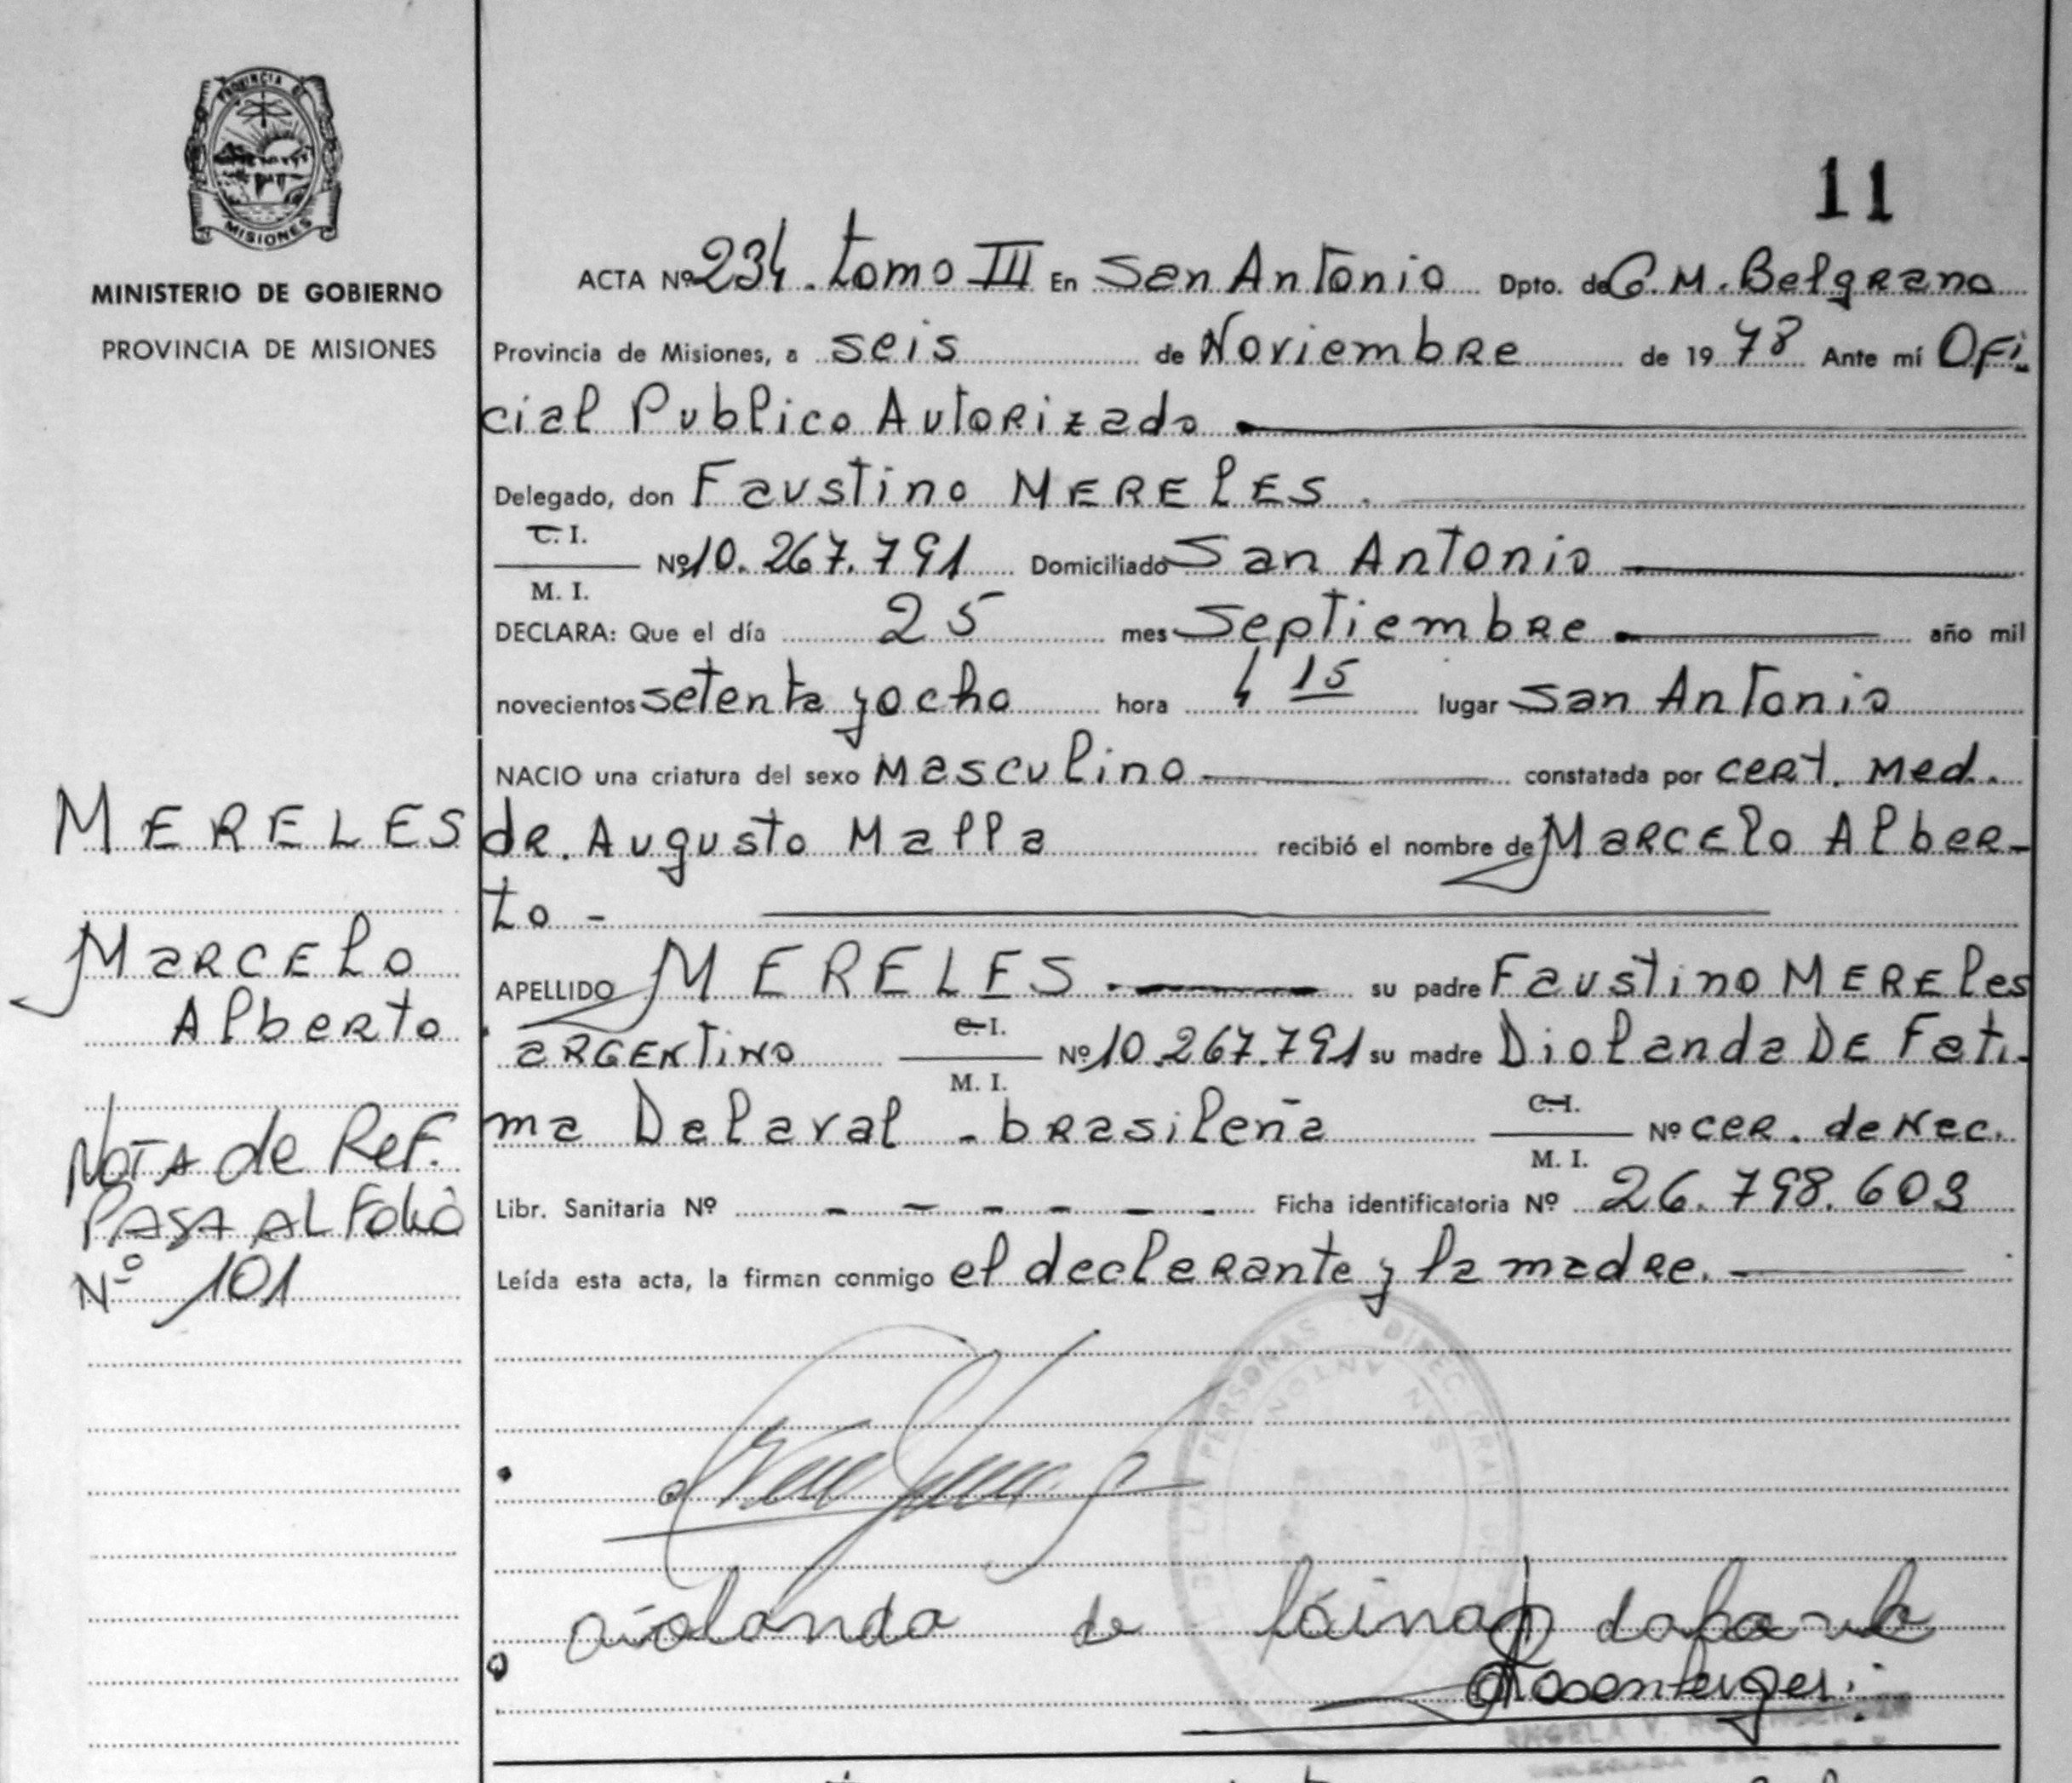 PROVINCIA DE
MISIONES
MINISTERIO DE GOBIERNO
PROVINCIA DE MISIONES
11
ACTA Nº 234. tomo III En San Antonio Dpto. de G.M. Belgrano
Provincia de Misiones, a seis de Noviembre de 1978 Ante mí Ofi-
cial Publico Autorizado
Delegado, don Faustino MERELES.
C. I.
Nº 10.267.791 Domiciliado San Antonio
M. I.
DECLARA: Que el día 25 mes Septiembre año mil
novecientos setenta y ocho hora 4 15 lugar San Antonio
NACIO una criatura del sexo Masculino constatada por cert. Med.
MERELES
dR. Augusto Malla recibió el nombre de Marcelo Alber-
to -
Marcelo
Alberto
APELLIDO MERELES. su padre Faustino MERELes
C. I.
ARGENTINO Nº 10.267.791 su madre Diolanda DE Fati-
M. I.
ma Delaval - brasileña C. I. Nº cer. de Nac.
M. I.
Nota de Ref.
Pasa al Folio
Nº 101
Libr. Sanitaria Nº - - - - - - Ficha identificatoria Nº 26.798.609
Leída esta acta, la firman conmigo el declarante y la madre.
DE LAS PERSONAS
SAN ANTONIO
diolanda de
ANGELA V.